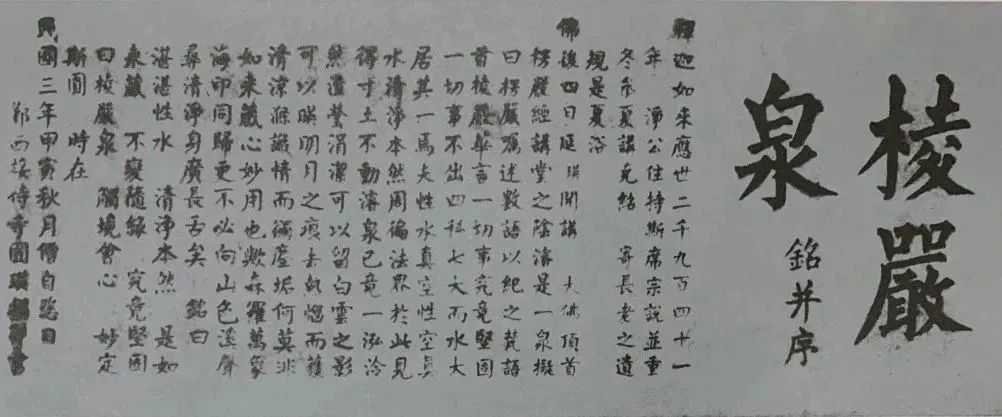 棱嚴
泉
銘并序
釋迦如來應世二千九百四十一
年 淨公住持斯席宗說並重
冬參夏講克結 寄長老之遺
規是夏浴
佛後四日延瑛開講 大佛頂首
楞嚴經講堂之陰濬是一泉擬
曰楞嚴囑述數語以紀之梵語
首棱嚴華言一切事究竟堅固
一切事不出四科七大而水大
居其一焉夫性水真空性空真
水清淨本然周徧法界於此見
得寸土不動濬泉已竟一泓泠
然澄瑩涓潔可以留白雲之影
可以暎明月之痕去熱惱而獲
清涼滌識情而蠲塵垢何莫非
如來藏心妙用也歟森羅萬象
海印同歸更不必向山色溪聲
尋清淨身廣長舌矣 銘曰
湛湛性水 清淨本然 是如
來藏 不變隨緣 究竟堅固
曰棱嚴泉 觸境會心 妙定
斯圓 時在
民國三年甲寅秋月僧自恣日
鄮西接待寺圓瑛